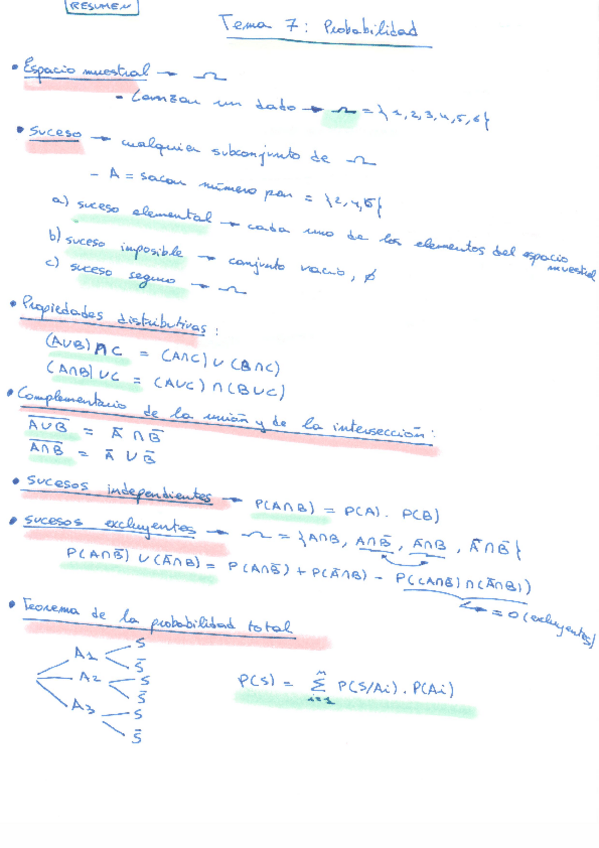 RESUMEN
Tema 7: Probabilidad
• Espacio muestral → Ω
- Lanzar un dado → Ω = {1,2,3,4,5,6}
• Suceso → cualquier subconjunto de Ω
- A = sacar número par = {2,4,6}
a) suceso elemental → cada uno de los elementos del espacio muestral
b) suceso imposible → conjunto vacío, ∅
c) suceso seguro → Ω
• Propiedades distributivas:
(A∪B)∩C = (A∩C)∪(B∩C)
(A∩B)∪C = (A∪C)∩(B∪C)
• Complementario de la unión y de la intersección:
A̅∪̅B̅ = A̅ ∩ B̅
A̅∩̅B̅ = A̅ ∪ B̅
• Sucesos independientes → P(A∩B) = P(A). P(B)
• Sucesos excluyentes → Ω = {A∩B, A∩B̅, A̅∩B, A̅∩B̅}
P(A∩B̅) ∪ (A̅∩B) = P(A∩B̅) + P(A̅∩B) - P((A∩B̅)∩(A̅∩B))
= 0 (excluyentes)
• Teorema de la probabilidad total
A1 S S̅
A2 S S̅
A3 S S̅
P(S) = Σ n i=1 P(S/Ai). P(Ai)